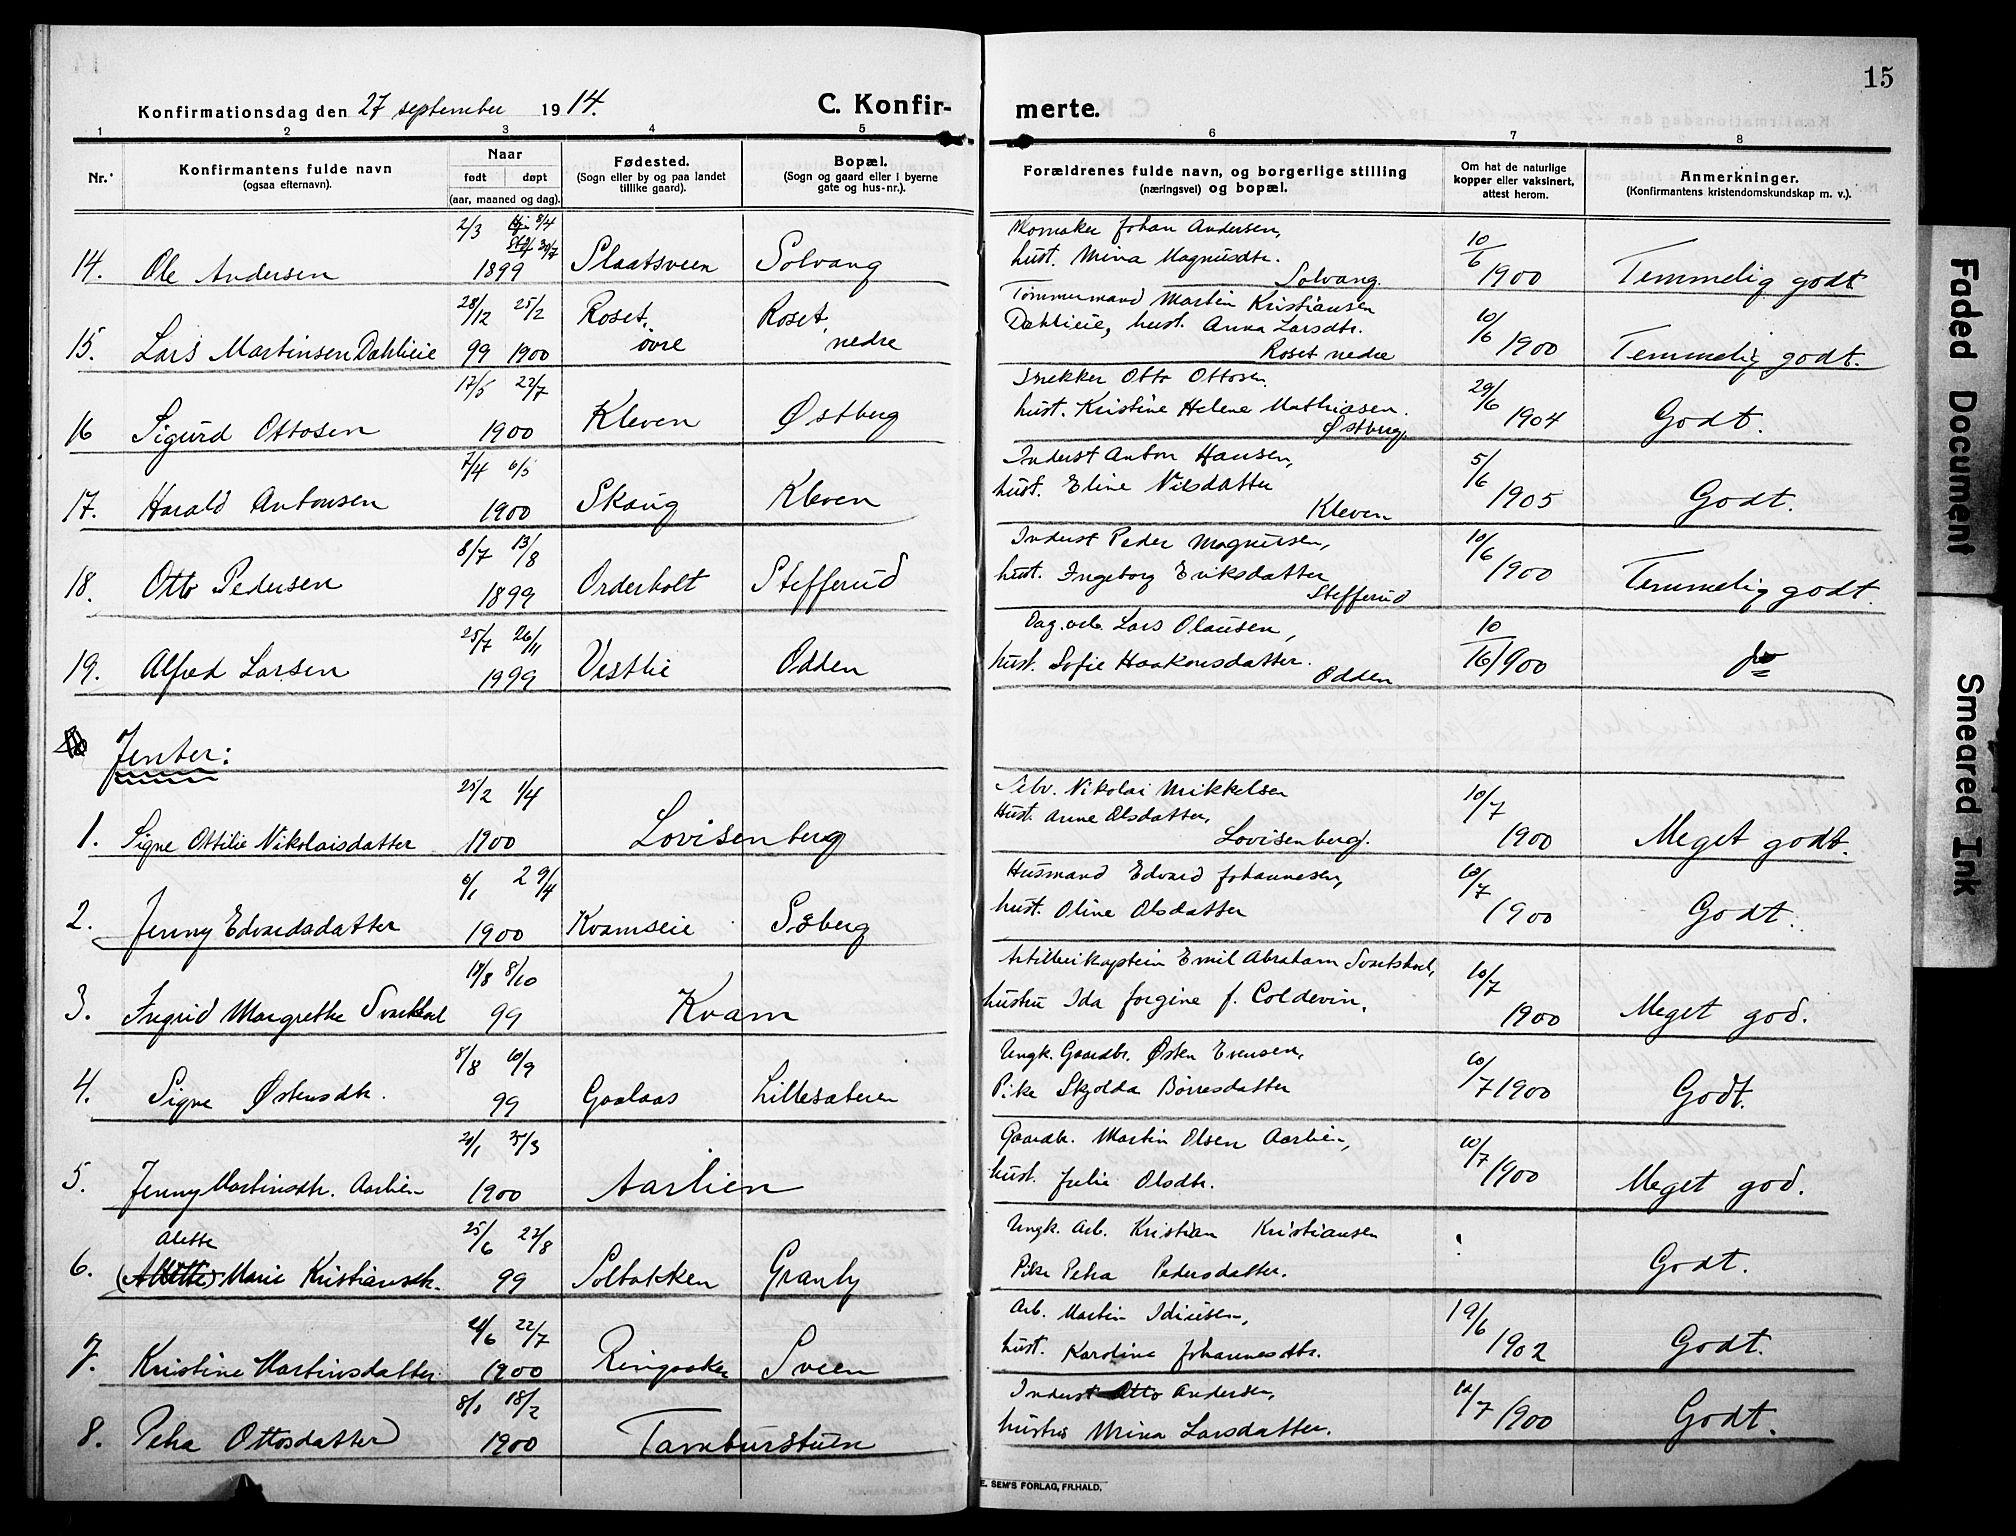 15
Konfirmationsdag den 27 september 1914.
C. Konfir-
merte.
1 2 3 4 5 6 7 8
Nr.
Konfirmantens fulde navn
(ogsaa efternavn).
Naar
født døpt
(aar, maaned og dag).
Fødested.
(Sogn eller by og paa landet
tillike gaard).
Bopæl.
(Sogn og gaard eller i byerne
gate og hus-nr.).
Forældrenes fulde navn, og borgerlige stilling
(næringsvei) og bopæl.
Om hat de naturlige
kopper eller vaksinert,
attest herom.
Anmerkninger.
(Konfirmantens kristendomskundskap m. v.).
2/3 8/4
30/7
14. Ole Andersen 1899 Slaatsveen Solvang
Skomaker Johan Andersen,
hust. Mina Magnusdtr.
Solvang.
10/6 1900 Temmelig godt
28/12 25/2
15. Lars Martinsen Dahlieie 99 1900 Roset øvre Roset nedre
Tømmermand Martin Kristiansen
Dahlieie, hust. Anna Larsdtr.
Roset nedre
10/6 1900 Temmelig godt.
17/5 22/7
16 Sigurd Ottosen 1900 Kleven Østberg
Snekker Otto Ottosen
hust. Kristine Helene Mathiasen.
Østberg.
29/6 1904 Godt.
7/4 6/5
17. Harald Antonsen 1900 Skaug Kleven
Inderst Anton Hansen,
hust. Eline Nilsdatter
Kleven
5/6 1905 Godt.
8/7 13/8
18. Otto Pedersen 1899 Orderholt Stefferud
Inderst Peder Magnussen,
hust. Ingeborg Eriksdatter
Stefferud
10/6 1900 Temmelig godt.
25/7 26/11
19. Alfred Larsen 1999 Vestlie Odden
Dag. arb. Lars Olausen,
hust. Sofie Haakonsdatter.
Odden
10/16 1900
Jenter:
25/2 1/4
1. Signe Ottilie Nikolaisdatter 1900 Lovisenberg
Selv. Nikolai Mikkelsen
Hust. Anne Olsdatter,
Lovisenberg.
10/7 1900 Meget godt.
6/1 29/4
2. Jenny Edvardsdatter 1900 Kvamseie Søberg
Husmand Edvard Johannesen,
hust. Oline Olsdatter
10/7 1900 Godt.
18/8 8/10
3. Ingrid Margrethe 99 Kvam
Artillerikaptein Emil Abraham
hustru Ida Jorgine f. Coldevin.
10/7 1900 Meget god.
8/8 10/9
4. Signe Østensdtr. 99 Gaalaas Lillesæteren
Ungk. Gaardbr. Østen Evensen,
Pike Skjolda Børresdatter
10/7 1900 Godt.
20/1 25/3
5. Jenny Martinsdtr. Aarlien 1900 Aarlien
Gaardb. Martin Olsen Aarlien,
hust. Julie Olsdtr.
10/7 1900 Meget god.
Alette
25/6 27/8
6. Marie Kristiansdtr. 99 Solbakken Granly
Ungk. Arb. Kristian Kristiansen
Pike Petra Pedersdatter.
Godt.
24/6 22/7
7. Kristine Martinsdatter. 1900 Ringsaker Sveen
Arb. Martin Idiusen,
hust. Karoline Johannesdtr.
19/6 1902 Godt.
8/1 18/2
8. Petra Ottosdatter 1900 Tamburstuen
Inderst Otto Andersen,
hustru Mina Larsdatter.
12/7 1900 Godt.
E. SEM'S FORLAG, FR.HALD.
Faded Document
Smeared Ink